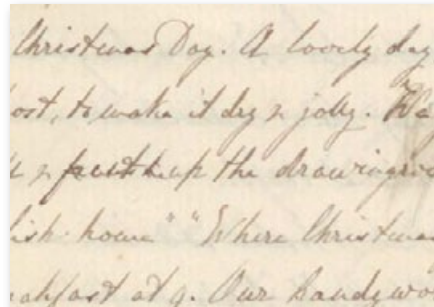 Christmas Day. A lovely day
ost, to make it dry & jolly. We
& put up the drawingroo
lish home" "Where Christmas
eakfast at 9. Our handy wo